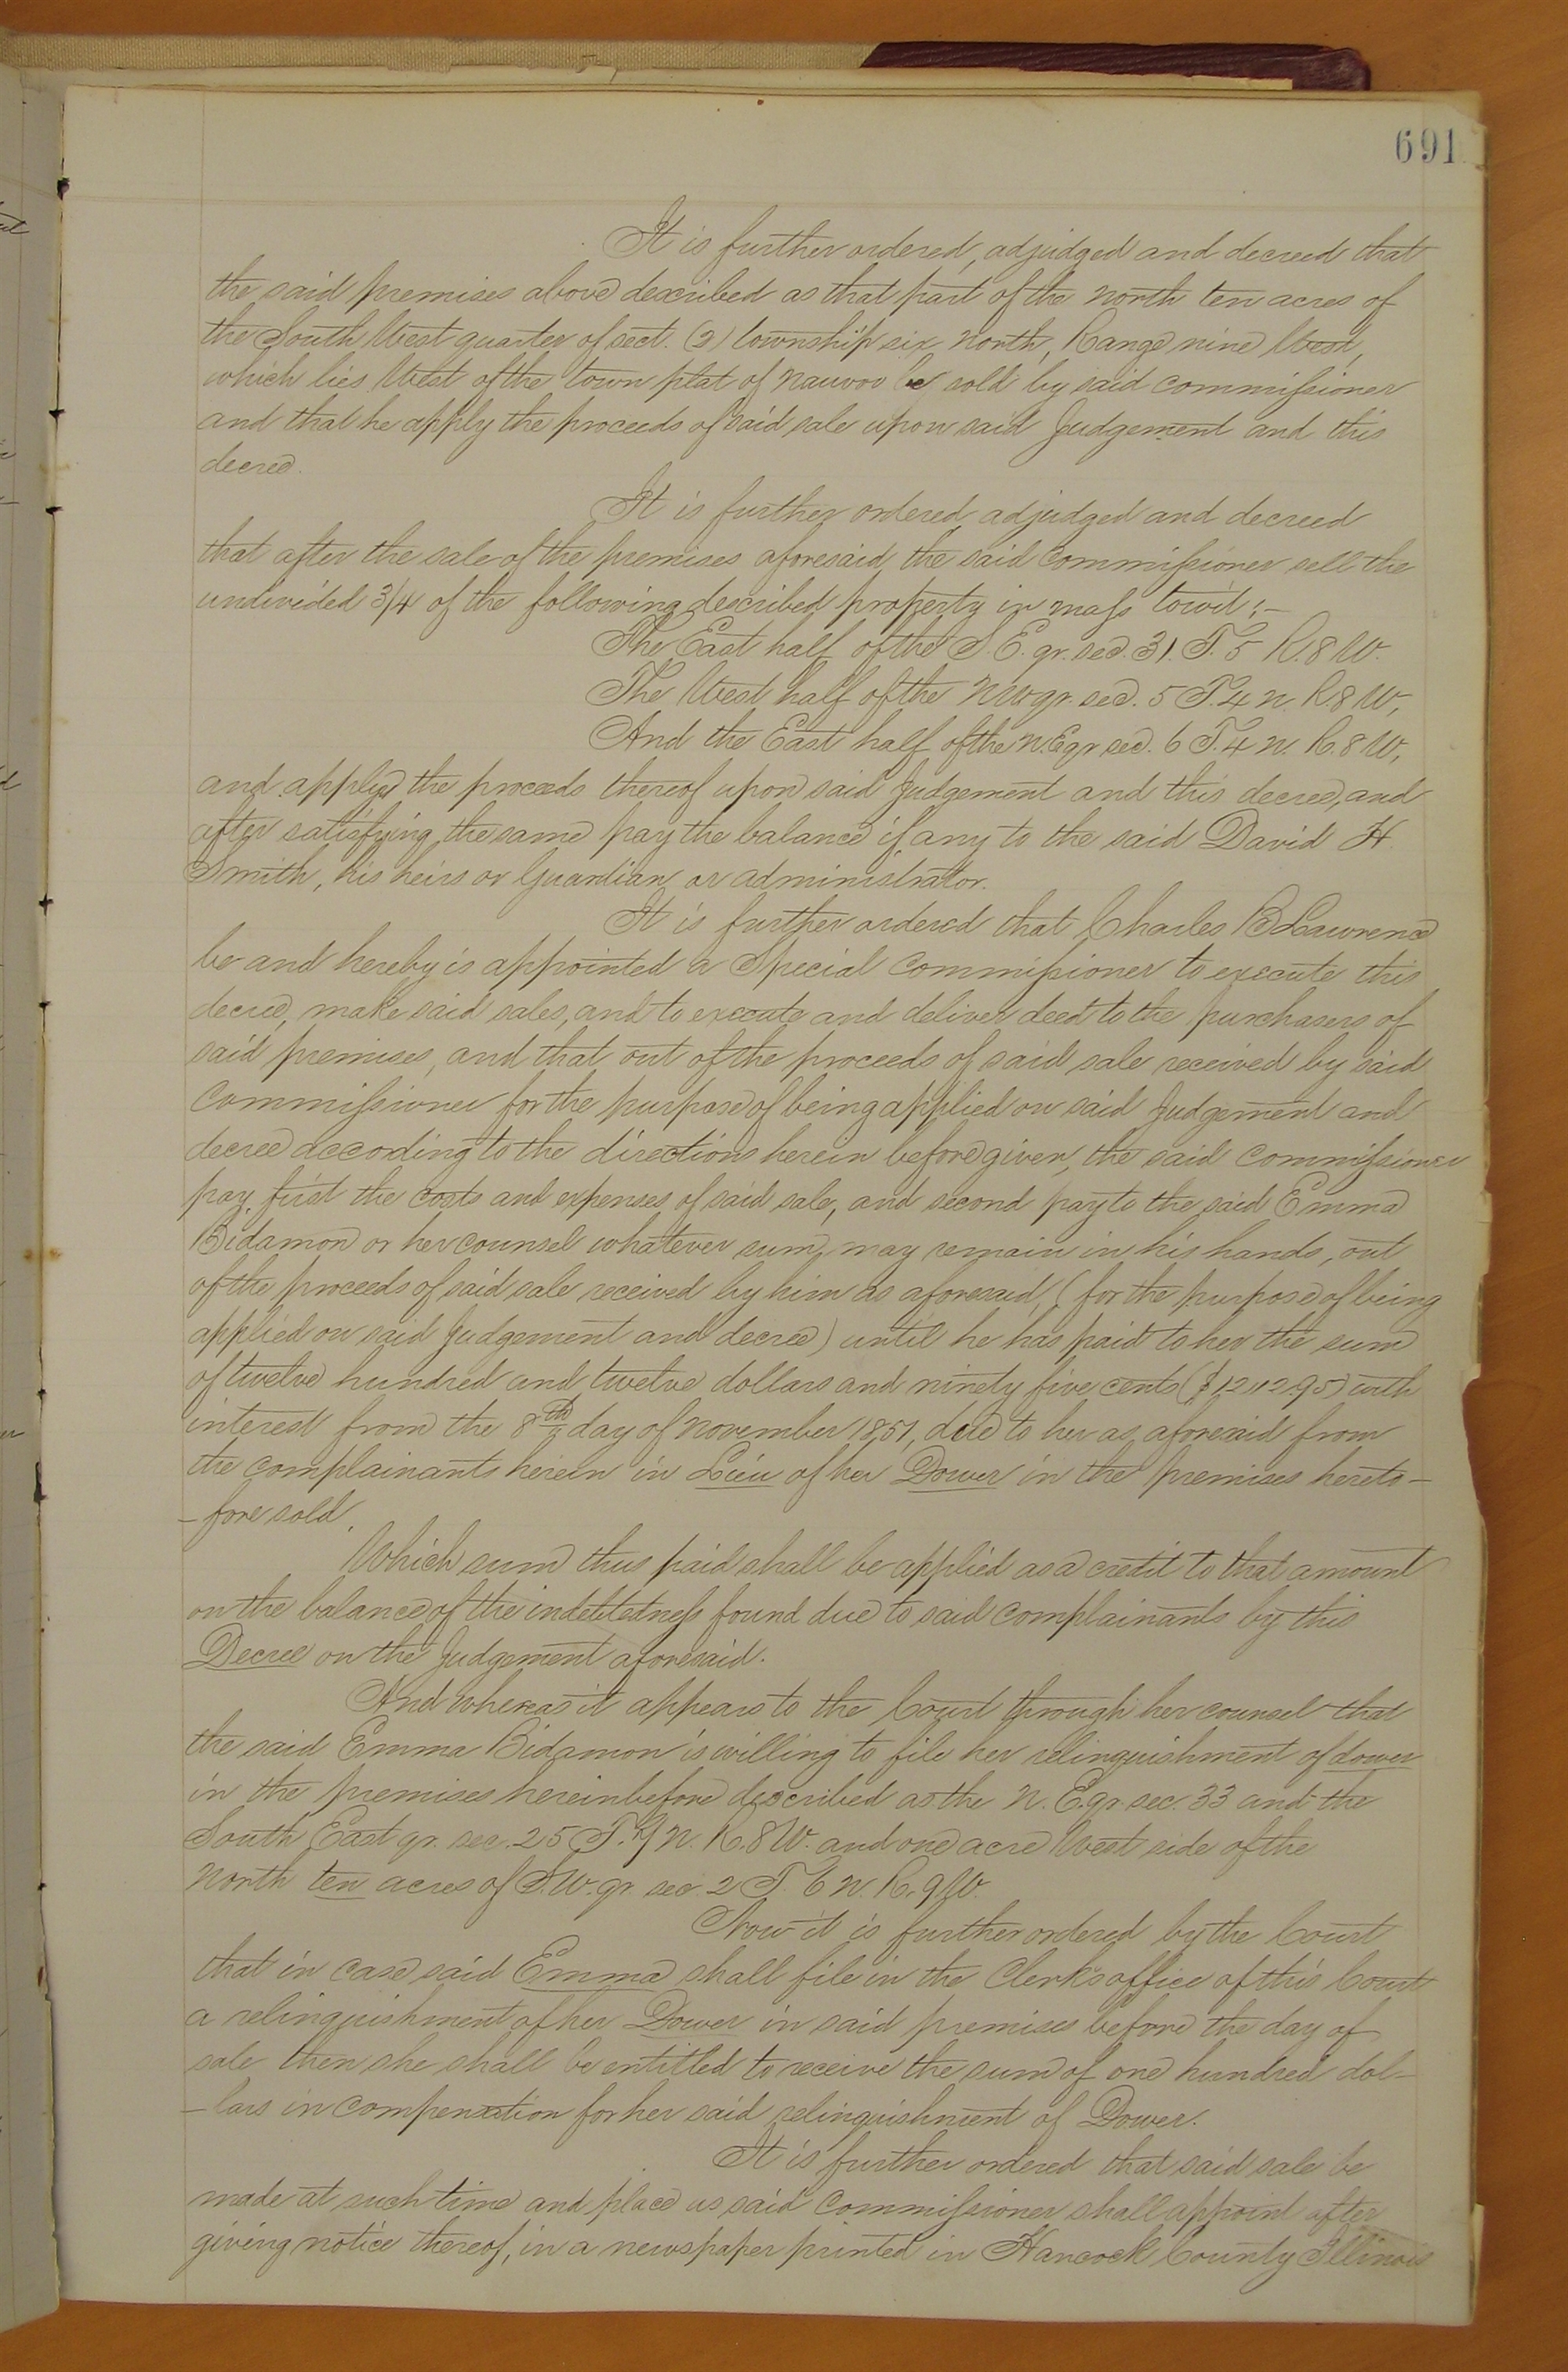 691
It is further ordered, adjudged and decreed that
the said premises above described as that part of the north ten acres of
the South West quarter of sect. (2) township six North, Range nine West,
which lies West of the town plat of Nauvoo be sold by said commissioner
and that he apply the proceeds of said sale upon said Judgement and this
decree.
It is further ordered, adjudged and decreed
that after the sale of the premises aforesaid, the said Commissioner sell the
undivided 3/4 of the following described property in mass towit:-
The East half of the S.E. qr. sec. 31. T. 5 R. 8 W.
The West half of the NW qr. sec. 5 T. 4 N. R. 8 W,
And the East half of the N.E qr sec. 6 T. 4 N. R. 8 W,
and apply the proceeds thereof upon said Judgement and this decree, and
after satisfying the same pay the balance if any to the said David H.
Smith, his heirs or Guardian or administrator.
It is further ordered that Charles B Lawrence
be and hereby is appointed a Special Commissioner to execute this
decree, make said sales, and to execute and deliver deed to the purchasers of
said premises, and that out of the proceeds of said sale received by said
Commissioner for the purpose of being applied on said Judgement and
decree according to the directions herein before given, the said commissioner
pay, first the costs and expenses of said sale, and second pay to the said Emma
Bidamon or her counsel whatever sum, may remain in his hands, out
of the proceeds of said sale received by him as aforesaid, (for the purpose of being
applied on said Judgement and decree) until he has paid to her the sum
of twelve hundred and twelve dollars and ninety five cents ($1212.95) with
interest from the 8th day of November 1851, due to her as aforesaid from
the complainants herein in Lieu of her Dower in the premises hereto-
-fore sold.
Which sum thus paid shall be applied as a credit to that amount
on the balance of the indebtedness found due to said complainants by this
Decree on the Judgement aforesaid.
And whereas it appears to the Court through her counsel that
the said Emma Bidamon is willing to file her relinquishment of dower
in the premises hereinbefore described as the N.E. qr. sec. 33 and the
South East qr. sec. 25 T. 7 N. R. 8 W. and one acre West side of the
North ten acres of S.W. qr sec 2 T. 6 N. R. 9 W.
Now it is further ordered by the Court
that in case said Emma shall file in the Clerk's office of this Court
a relinquishment of her Dower in said premises before the day of
sale then she shall be entitled to receive the sum of one hundred dol-
-lars in compensation for her said relinquishment of Dower.
It is further ordered that said sale be
made at such time and place as said Commissioner shall appoint after
giving notice thereof, in a newspaper printed in Hancock County Illinois